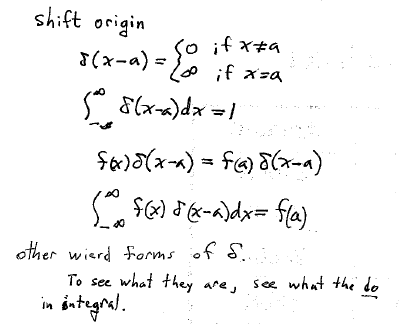 shift origin
δ(x-a) = { 0 if x≠a
∞ if x=a
∫_{-∞}^{∞} δ(x-a)dx = 1
f(x)δ(x-a) = f(a) δ(x-a)
∫_{-∞}^{∞} f(x) δ(x-a)dx = f(a)
other wierd forms of δ.
To see what they are, see what the do
in integral.